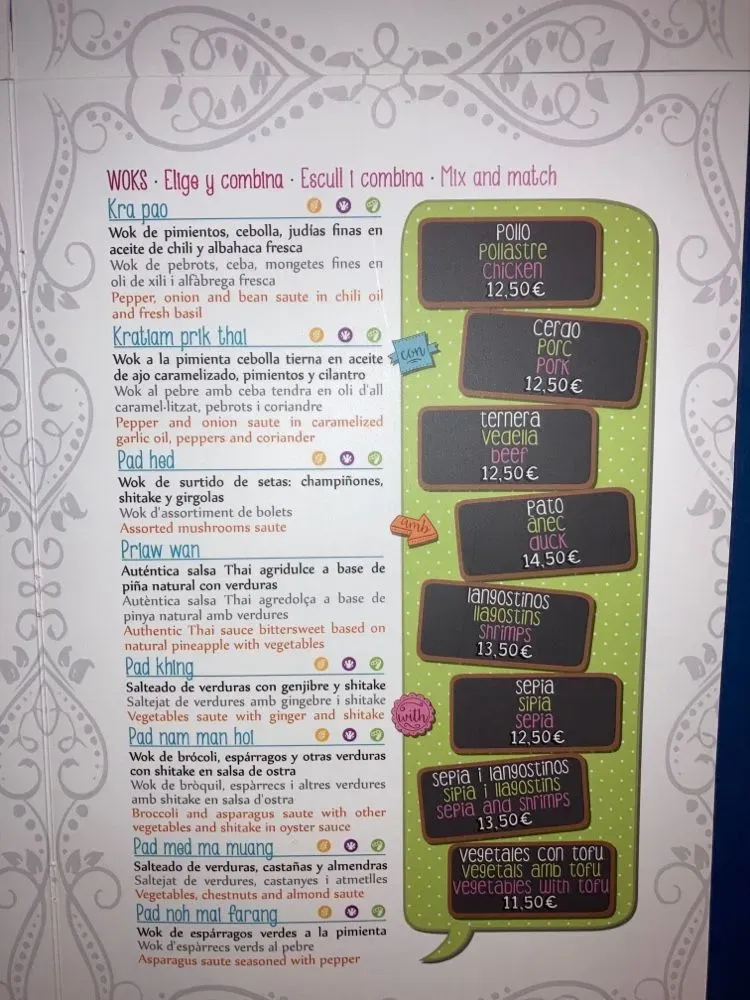 WOKS · Elige y combina · Escull i combina · Mix and match
Kra pao
Wok de pimientos, cebolla, judías finas en
aceite de chili y albahaca fresca
Wok de pebrots, ceba, mongetes fines en
oli de xili i alfàbrega fresca
Pepper, onion and bean saute in chili oil
and fresh basil
Kratiam prik thai
Wok a la pimienta cebolla tierna en aceite
de ajo caramelizado, pimientos y cilantro
Wok al pebre amb ceba tendra en oli d'all
caramel·litzat, pebrots i coriandre
Pepper and onion saute in caramelized
garlic oil, peppers and coriander
Pad hed
Wok de surtido de setas: champiñones,
shitake y girgolas
Wok d'assortiment de bolets
Assorted mushrooms saute
Priaw wan
Auténtica salsa Thai agridulce a base de
piña natural con verduras
Autèntica salsa Thai agredolça a base de
pinya natural amb verdures
Authentic Thai sauce bittersweet based on
natural pineapple with vegetables
Pad khing
Salteado de verduras con genjibre y shitake
Saltejat de verdures amb gingebre i shitake
Vegetables saute with ginger and shitake
Pad nam man hoi
Wok de brócoli, espárragos y otras verduras
con shitake en salsa de ostra
Wok de bròquil, espàrrecs i altres verdures
amb shitake en salsa d'ostra
Broccoli and asparagus saute with other
vegetables and shitake in oyster sauce
Pad med ma muang
Salteado de verduras, castañas y almendras
Saltejat de verdures, castanyes i atmetlles
Vegetables, chestnuts and almond saute
Pad noh mai farang
Wok de espárragos verdes a la pimienta
Wok d'espàrrecs verds al pebre
Asparagus saute seasoned with pepper
con
amb
with
pollo
pollastre
chicken
12,50€
cerdo
porc
pork
12,50€
ternera
vedella
beef
12,50€
pato
ànec
duck
14,50€
langostinos
llagostins
shrimps
13,50€
sepia
sípia
sepia
12,50€
sepia i langostinos
sípia i llagostins
sepia and shrimps
13,50€
vegetales con tofu
vegetals amb tofu
vegetables with tofu
11,50€